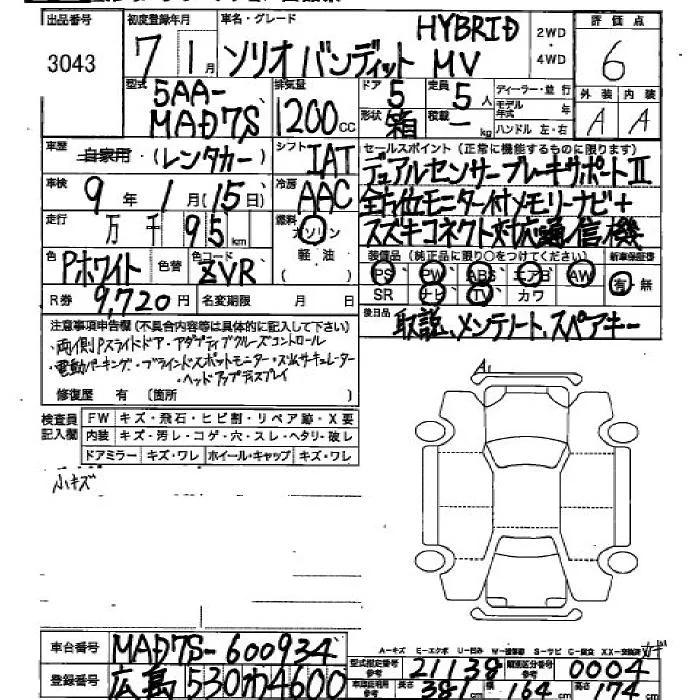 出品番号 初度登録年月 車名・グレード 2WD・4WD 評価点
3043 7年1月 ソリオバンディット HYBRID MV 6
型式 5AA-MAD7S 排気量 1200cc ドア 5 定員 5人 ディーラー・並行 外装 内装
形状 箱 積載 ー kg モデル年式 年 A A
ハンドル 左・右
車歴 自家用・(レンタカー) シフト IAT セールスポイント(正常に機能するものに限ります)
車検 9年1月(15日) 冷房 AAC デュアルセンサーブレーキサポートII
走行 万千95km 燃料 ガソリン 軽油( ) 全方位モニター付メモリーナビ+
スズキコネクト対応通信機
色 Pホワイト 色替 色コード ZVR 装備品(純正品に限り○をつけてください) 新車保証書
PS PW ABS エアB AW 有・無
R券 9,720円 名変期限 月 日 SR ナビ TV カワ
後日品 取説、メンテノート、スペアキー
注意事項申告欄(不具合内容等は具体的に記入して下さい)
・両側Pスライドドア・アダプティブクルーズコントロール
・電動パーキング・ブラインドスポットモニター・スリムサーキュレーター
・ヘッドアップディスプレイ
修復歴 有(箇所 A1
検査員記入欄 FW キズ・飛石・ヒビ割・リペア跡・X要
内装 キズ・汚レ・コゲ・穴・スレ・ヘタリ・破レ
ドアミラー キズ・ワレ ホイール・キャップ キズ・ワレ
小キズ
A-キズ E-エクボ U-凹み W-補修跡 S-サビ C-腐食 XX-交換済
車台番号 MAD7S-600934 型式指定番号参考 21138 類別区分番号参考 0004
登録番号 広島530わ4600 車体住所利用参考 長さ 381cm 幅 164cm 高さ 174cm